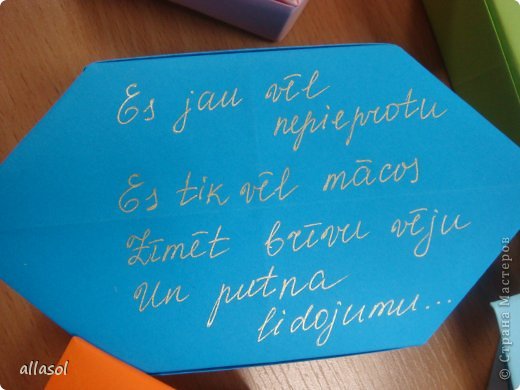 Es jau vēl
nepieprotu
Es tik vēl mācos
Zīmēt brīvu vēju
Un putna
lidojumu...
allasol
© Страна Мастеров